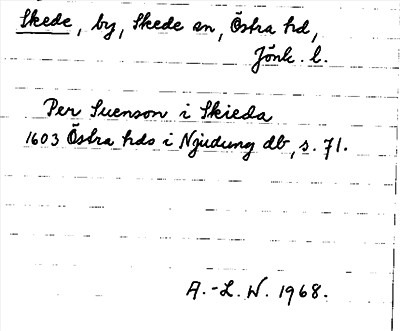 Skede, by, Skede sn, Östra hd,
Jönk. l.
Per Suenson i Skieda
1603 Östra hds i Njudung db, s. 71.
A.-L. W. 1968.